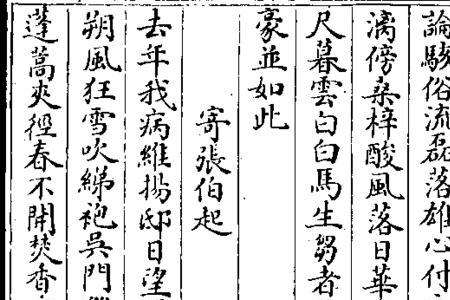 論駭俗流磊落雄心付
漓傍桒梓酸風落日華
尺暮雲白白馬生芻者
豪並如此
寄張伯起
去年我病維揚邸日望
朔風狂雪吹綈袍吳門
蓬蒿夾徑春不開焚香